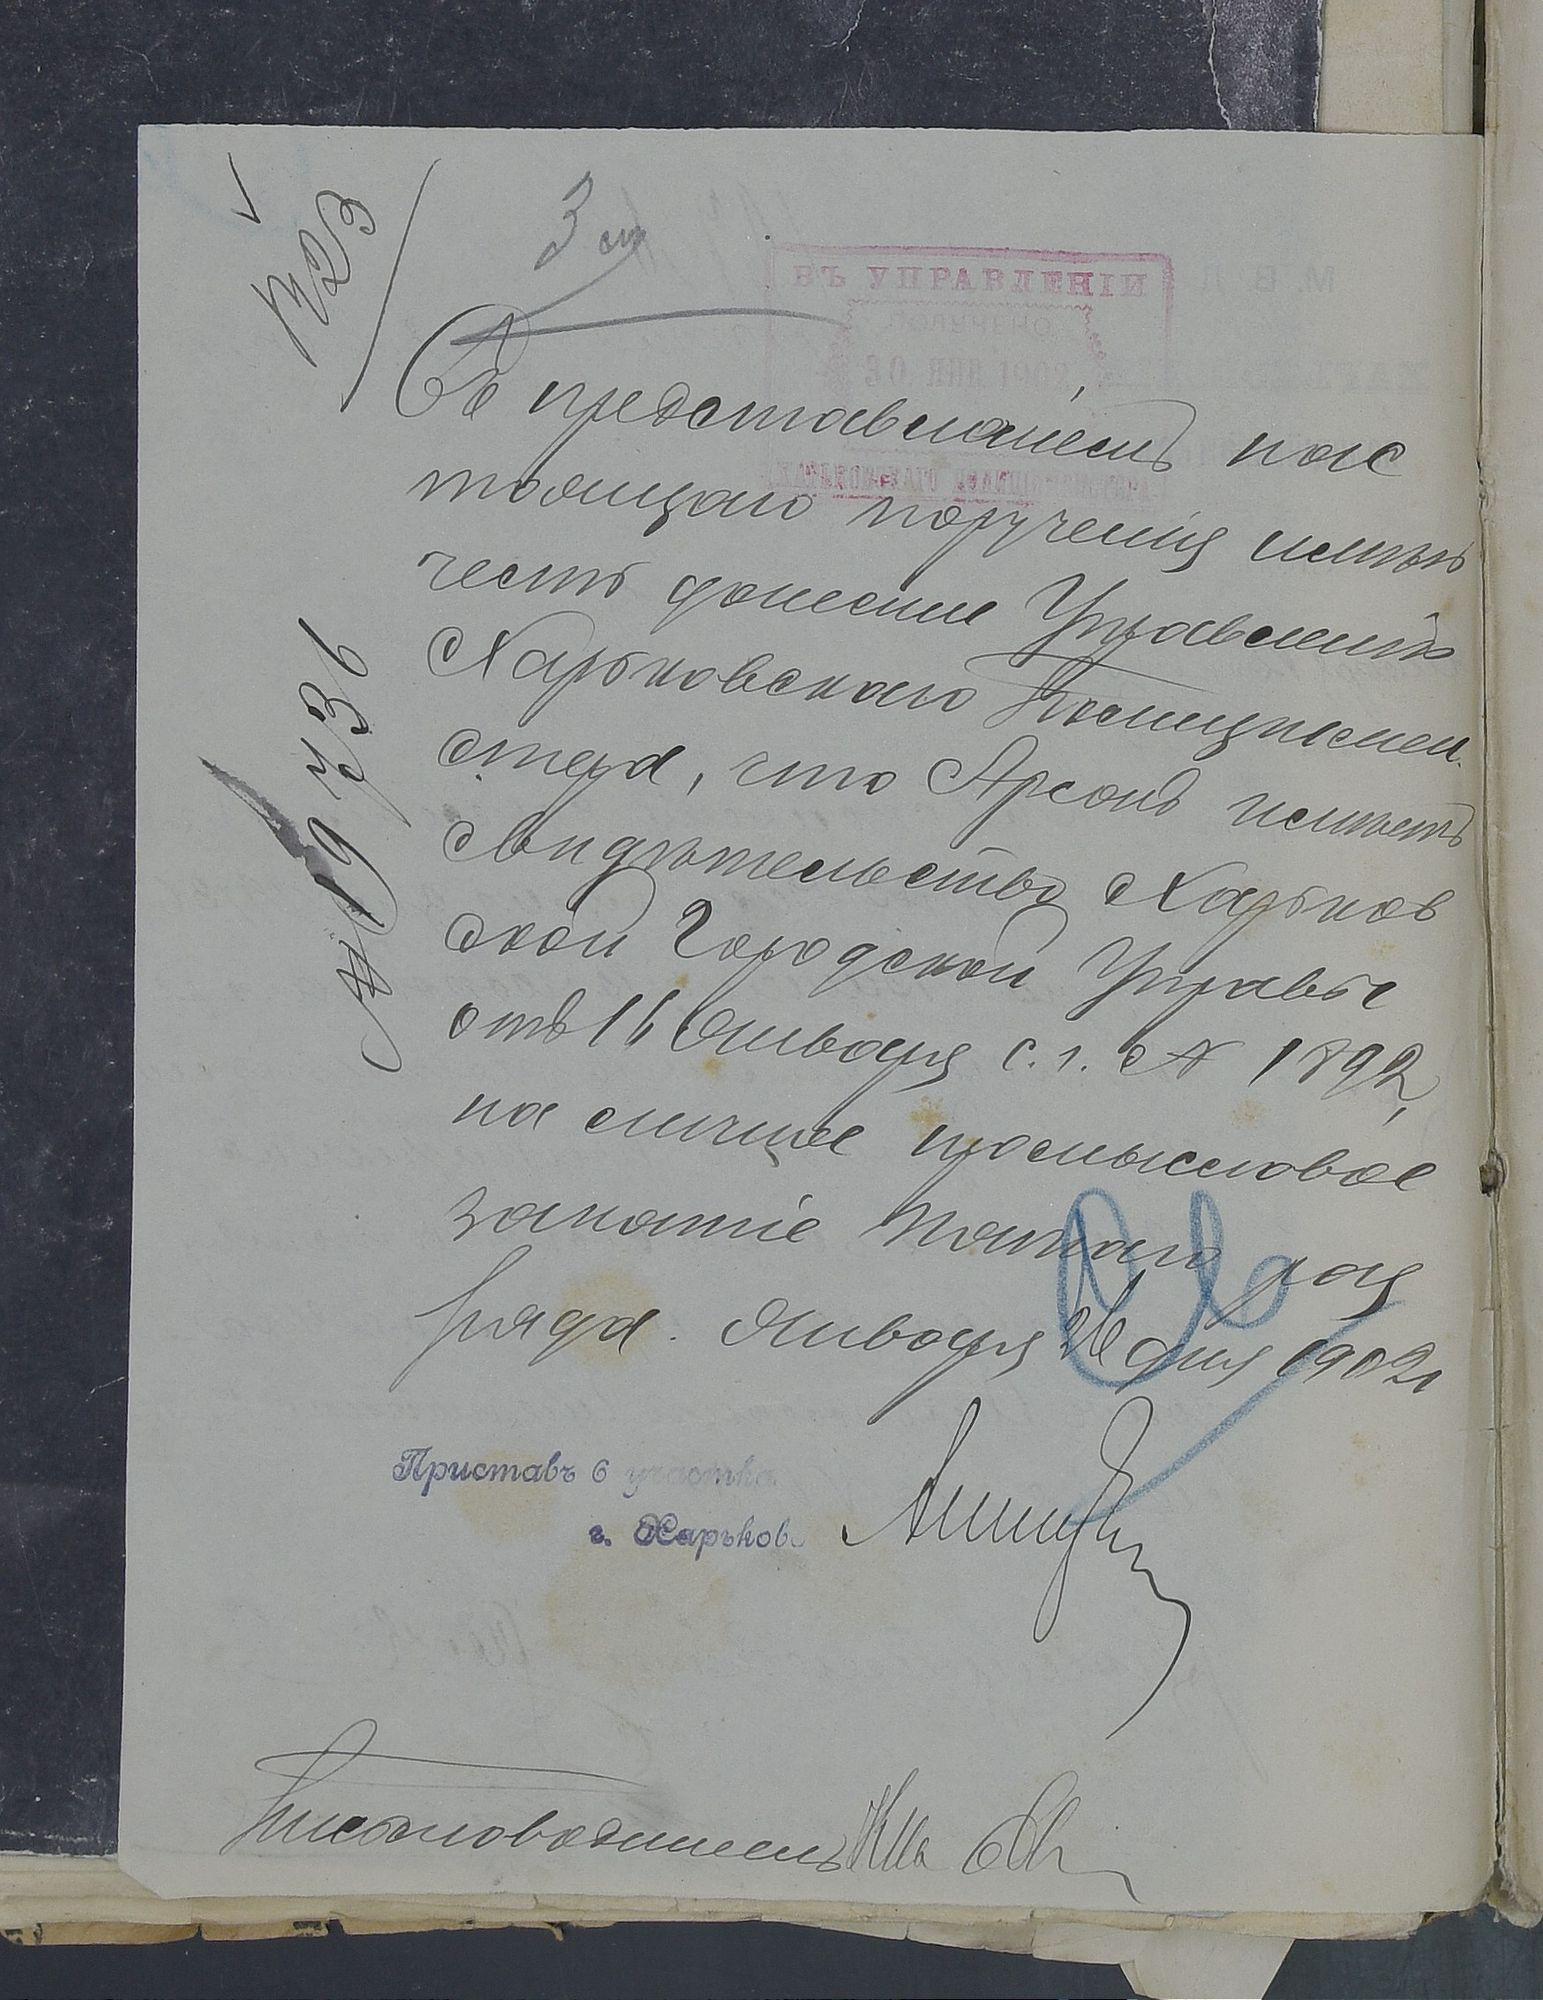 3 ст
ВЪ УПРАВЛЕНІИ
ПОЛУЧЕНО
30 ЯНВ 1902
ХАРЬКОВСКАГО ПОЛИЦІЙМЕЙСТЕРА
Съ представленіемъ нас
тоящаго порученія имѣю
честь донести Управленію
Харьковскаго Полицмей
стера, что Арсонъ имѣетъ
свидѣтельство Харьков
ской Городской Управы
отъ 16 Января с. г. № 1892,
на личное промысловое
занятіе пятаго раз
ряда. Января 26 дня 1902 г
№ 19736
Приставъ 6 участка
г. Харьков
Письмоводитель